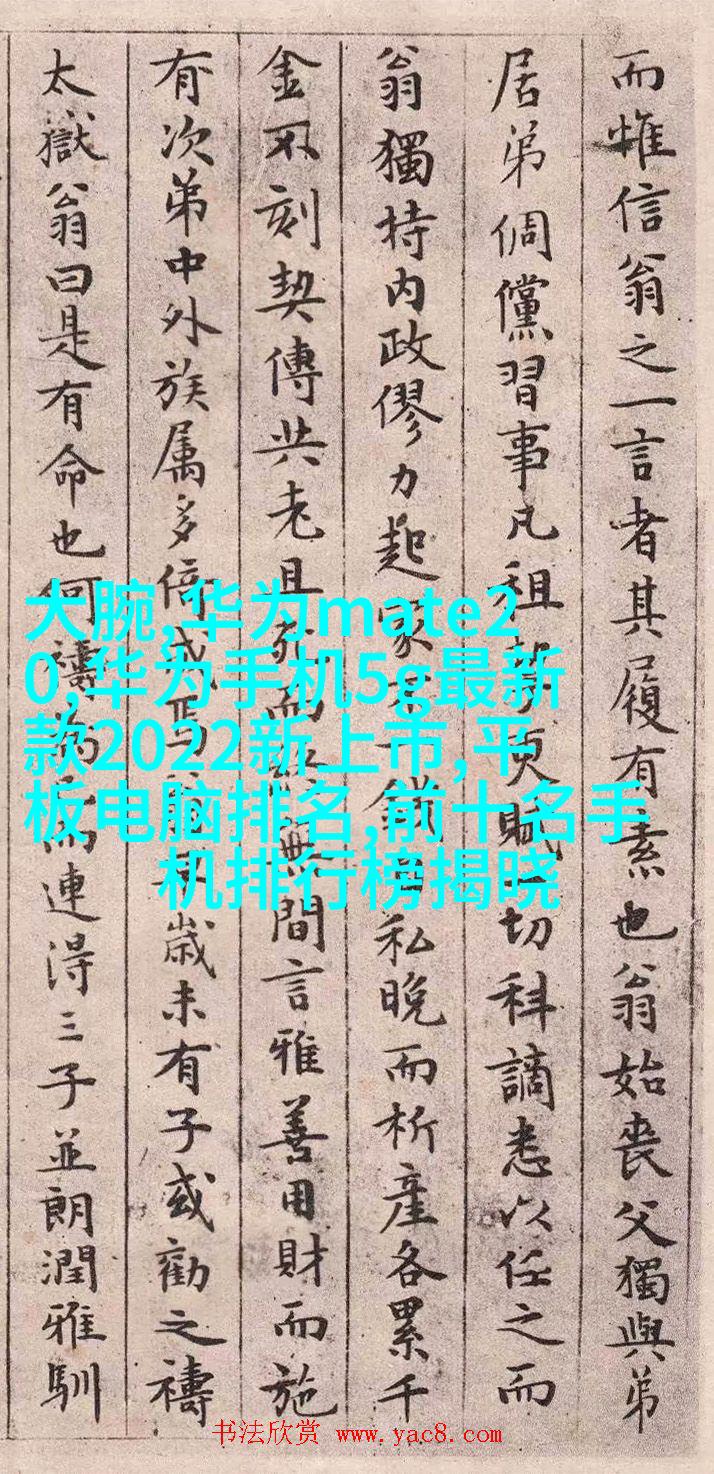 而惟信翁之一言者其履有素也翁始喪父獨與弟
居弟倜儻習事凡租賦一切科謫悉以任之而
翁獨持内政僇力起家不一錢私晚而析產各累千
金不刻契傳共老且死而無間言雅善用財而施
有次第中外族属多倍歲未有子或勸之禱
太嶽翁曰是有命也何禱為而連得三子並朗潤雅馴
大腕,华为mate2
0,华为手机5g最新
款2022新上市,平
板电脑排名,前十名手
机排行榜揭晓
书法欣赏 www.yac8.com